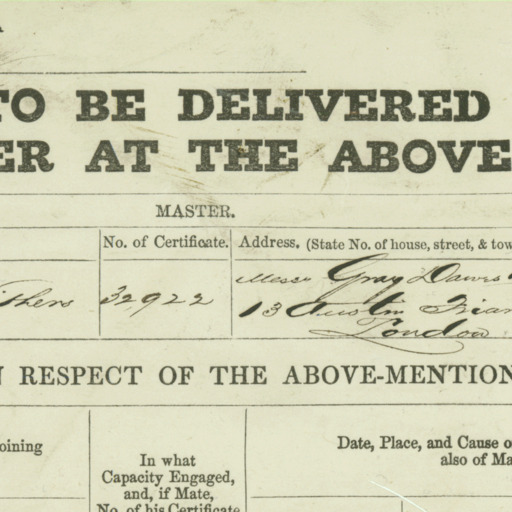 TO BE DELIVERED
ER AT THE ABOVE
MASTER.
No. of Certificate. Address. (State No. of house, street, & tow
thers 32922 Messrs Gray Dawes
13 Austin Friars
London
N RESPECT OF THE ABOVE-MENTION
oining
In what
Capacity Engaged,
and, if Mate,
No. of his Certificate
Date, Place, and Cause o
also of Ma